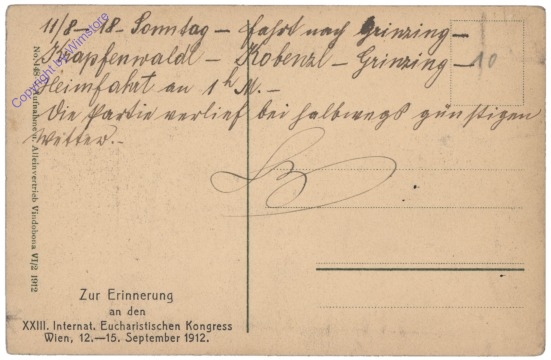 11/8 - 18 - Sonntag - Fahrt nach Grinzing -
Krapfenwaldl - Kobenzl - Grinzing -
Heimfahrt an 1h M. -
Die Partie verlief bei halbwegs günstigen
Wetter. -
10
Copyright by Wimstore
Aufnahme u. Alleinvertrieb Vindobona VI/2 1912
Zur Erinnerung
an den
XXIII. Internat. Eucharistischen Kongress
Wien, 12.—15. September 1912.